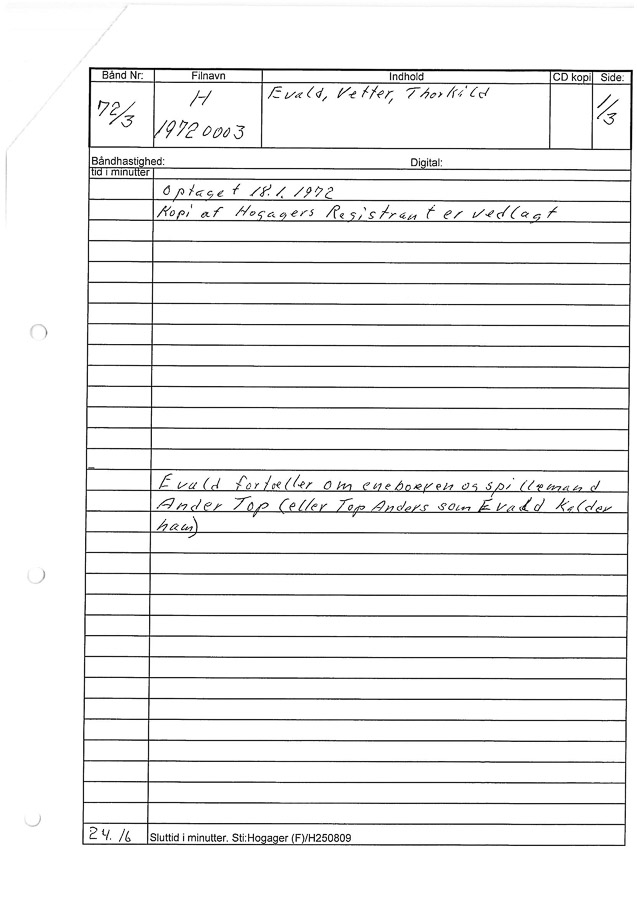 Bånd Nr: Filnavn Indhold CD kopi Side:
72/3 H Evald, Vetter, Thorkild 1/3
1972 0003
Båndhastighed: Digital:
tid i minutter
Optaget 18.1.1972
Kopi af Hogagers Registrant er vedlagt
Evald fortæller om eneboeren og spillemand
Ander Top (eller Top Anders som Evald Kalder
ham)
24.16 Sluttid i minutter. Sti:Hogager (F)/H250809